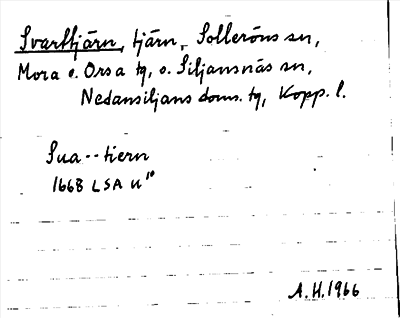 Svarttjärn, tjärn, Solleröns sn,
Mora o. Orsa tg, o. Siljansnäs sn,
Nedansiljans doms. tg, Kopp. l.
Sua--tiern
1668 LSA U¹⁰
A.H. 1966